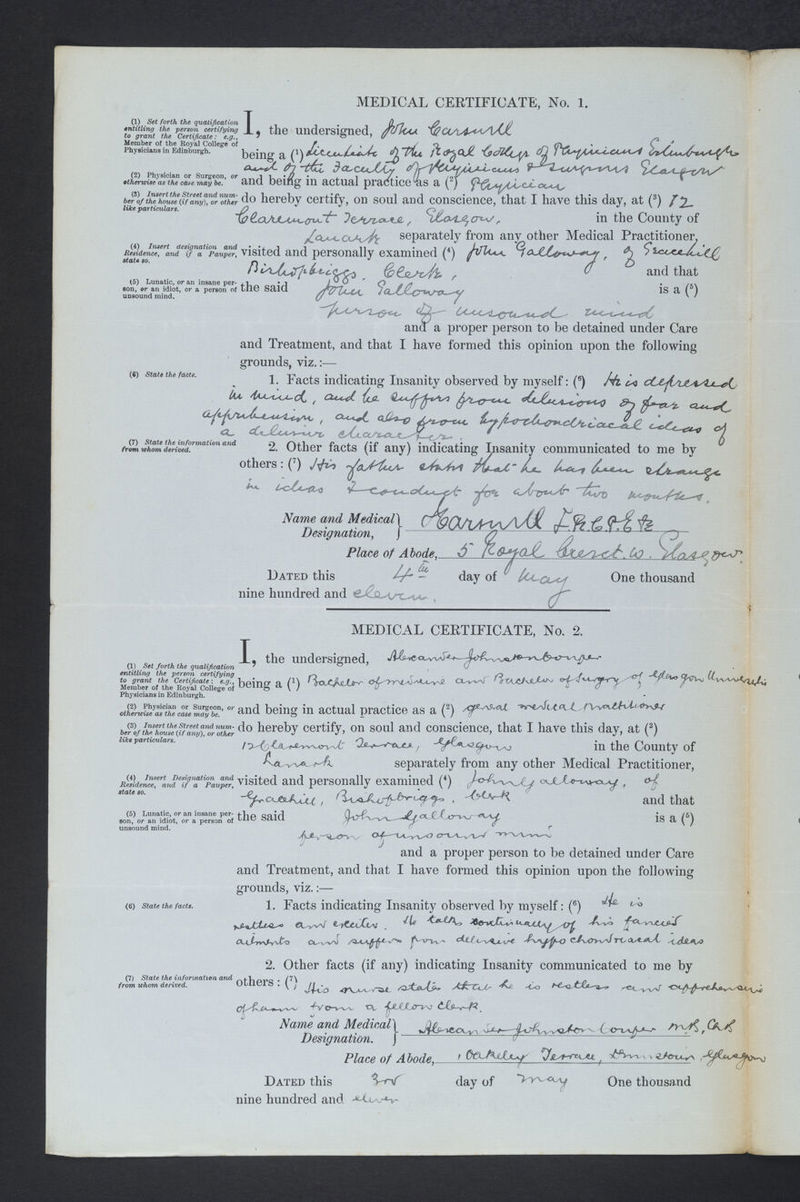 MEDICAL CERTIFICATE, No. 1.
(1) Set forth the qualification entitling the person certifying to grant the Certificate: e.g., Member of the Royal College of Physicians in Edinburgh.
I, the undersigned, John Carswell
being a (1) Licentiate of the Royal College of Physicians Edinburgh
and of the Faculty of Physicians & Surgeons Glasgow
(2) Physician or Surgeon, or otherwise as the case may be.
and being in actual practice as a (2) Physician
(3) Insert the Street and number of the house (if any), or other like particulars.
do hereby certify, on soul and conscience, that I have this day, at (3) 12
Claremont Terrace, Glasgow, in the County of
Lanark separately from any other Medical Practitioner,
(4) Insert designation and Residence, and if a Pauper, state so.
visited and personally examined (4) John Galloway, of Gracehill
Bishopbriggs. Clerk, and that
(5) Lunatic, or an insane person, or an idiot, or a person of unsound mind.
the said John Galloway is a (5)
person of unsound mind
and a proper person to be detained under Care
and Treatment, and that I have formed this opinion upon the following
grounds, viz.:—
(6) State the facts.
1. Facts indicating Insanity observed by myself: (6) He is depressed
in mind, and he suffers from delusions of fear and
apprehension, and also from hypochondriacal ideas of
a delusive character.
(7) State the information and from whom derived.
2. Other facts (if any) indicating Insanity communicated to me by
others: (7) His father states that he has been strange
in ideas & conduct for about two months.
Name and Medical Designation, J Carswell L.R.C.P.E &c
Place of Abode, 5 Royal Cresct. W. Glasgow
DATED this 4th day of May One thousand
nine hundred and eleven.
MEDICAL CERTIFICATE, No. 2.
(1) Set forth the qualification entitling the person certifying to grant the Certificate: e.g., Member of the Royal College of Physicians in Edinburgh.
I, the undersigned, Alexander Johnston Couper
being a (1) Bachelor of medicine and Bachelor of Surgery of Glasgow University
(2) Physician or Surgeon, or otherwise as the case may be.
and being in actual practice as a (2) general medical practitioner
(3) Insert the Street and number of the house (if any), or other like particulars.
do hereby certify, on soul and conscience, that I have this day, at (3)
12 Claremont Terrace, Glasgow in the County of
Lanark separately from any other Medical Practitioner,
(4) Insert Designation and Residence, and if a Pauper, state so.
visited and personally examined (4) John Galloway, of
Gracehill, Bishopbriggs. Clerk and that
(5) Lunatic, or an insane person, or an idiot, or a person of unsound mind.
the said John Galloway is a (5)
person of unsound mind
and a proper person to be detained under Care
and Treatment, and that I have formed this opinion upon the following
grounds, viz.:—
(6) State the facts.
1. Facts indicating Insanity observed by myself: (6) He is
restless and excited. He talks continually of his fancied
ailments and suffers from delusive hypochondriacal ideas
2. Other facts (if any) indicating Insanity communicated to me by
(7) State the information and from whom derived.
others: (7) His nurse states that he is restless and apprehensive
of harm from a fellow clerk.
Name and Medical Designation. Alexander Johnston Couper M.B, Ch.B
Place of Abode, 1 Oakeley Terrace, Dennistoun, Glasgow
DATED this 3rd day of May One thousand
nine hundred and eleven